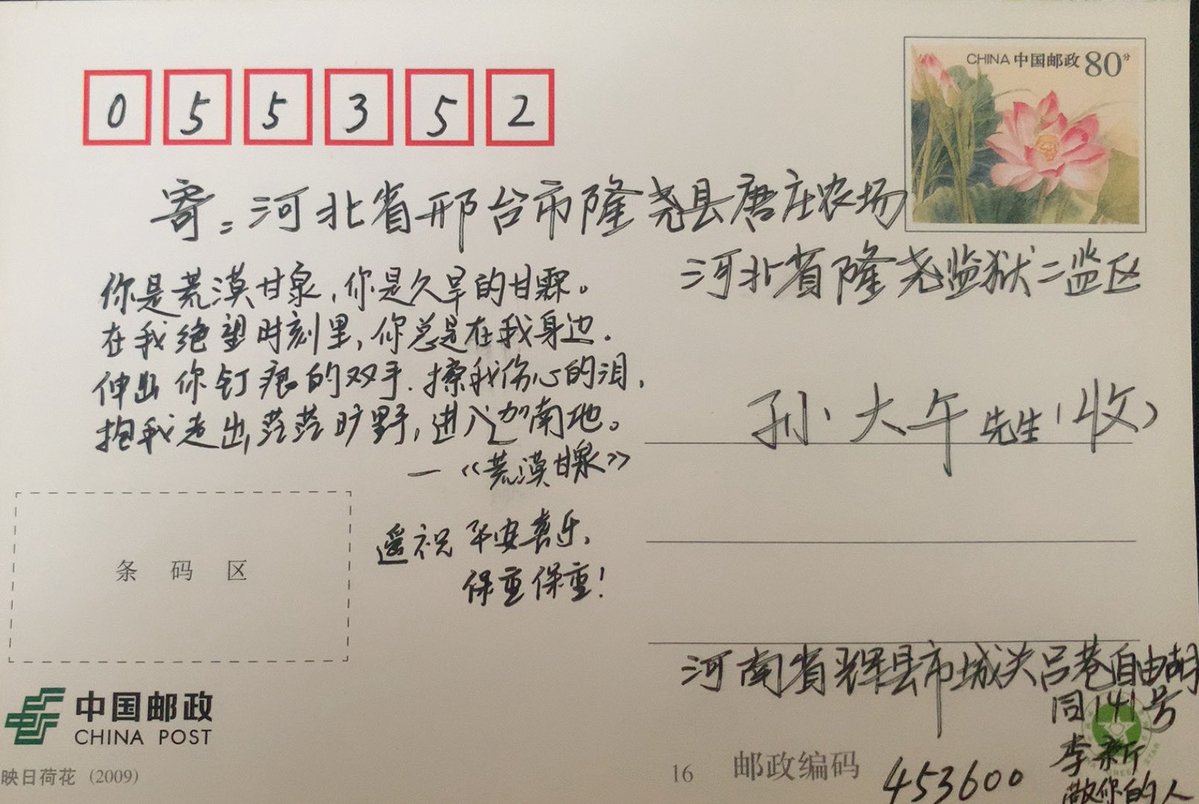 055352
CHINA 中国邮政 80分
寄:河北省邢台市隆尧县唐庄农场
河北省隆尧监狱二监区
你是荒漠甘泉,你是久旱的甘霖。
在我绝望时刻里,你总是在我身边.
伸出你钉痕的双手.擦我伤心的泪,
抱我走出茫茫旷野,进入迦南地。
—《荒漠甘泉》
孙大午先生(收)
遥祝平安喜乐,
保重保重!
条码区
河南省辉县市城关吕巷自由胡
同141号
李新
敬你的人
中国邮政
CHINA POST
映日荷花 (2009)
16 邮政编码 453600